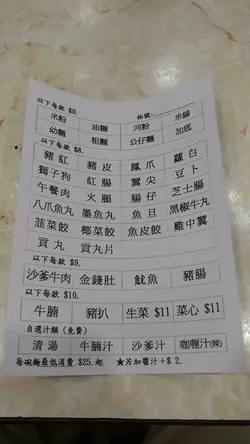 以下每款 $9.
枱號:
米粉 油麵 河粉 米線
幼麵 粗麵 公仔麵 加底
以下每款 $8.
豬紅 豬皮 鳳爪 蘿白
獅子狗 紅腸 翼尖 豆卜
午餐肉 火腿 腸仔 芝士腸
八爪魚丸 墨魚丸 魚旦 黑椒牛丸
韮菜餃 椰菜餃 魚皮餃 雞中翼
貢丸 貢丸片
以下每款 $9.
沙爹牛肉 金錢肚 魷魚 豬腸
以下每款 $10.
牛腩 豬扒 生菜 $11 菜心 $11
自選汁類 (免費)
清湯 牛腩汁 沙爹汁 咖喱汁(辣)
每碗麵最低消費 $25. 起 ★另加醬汁+$2.